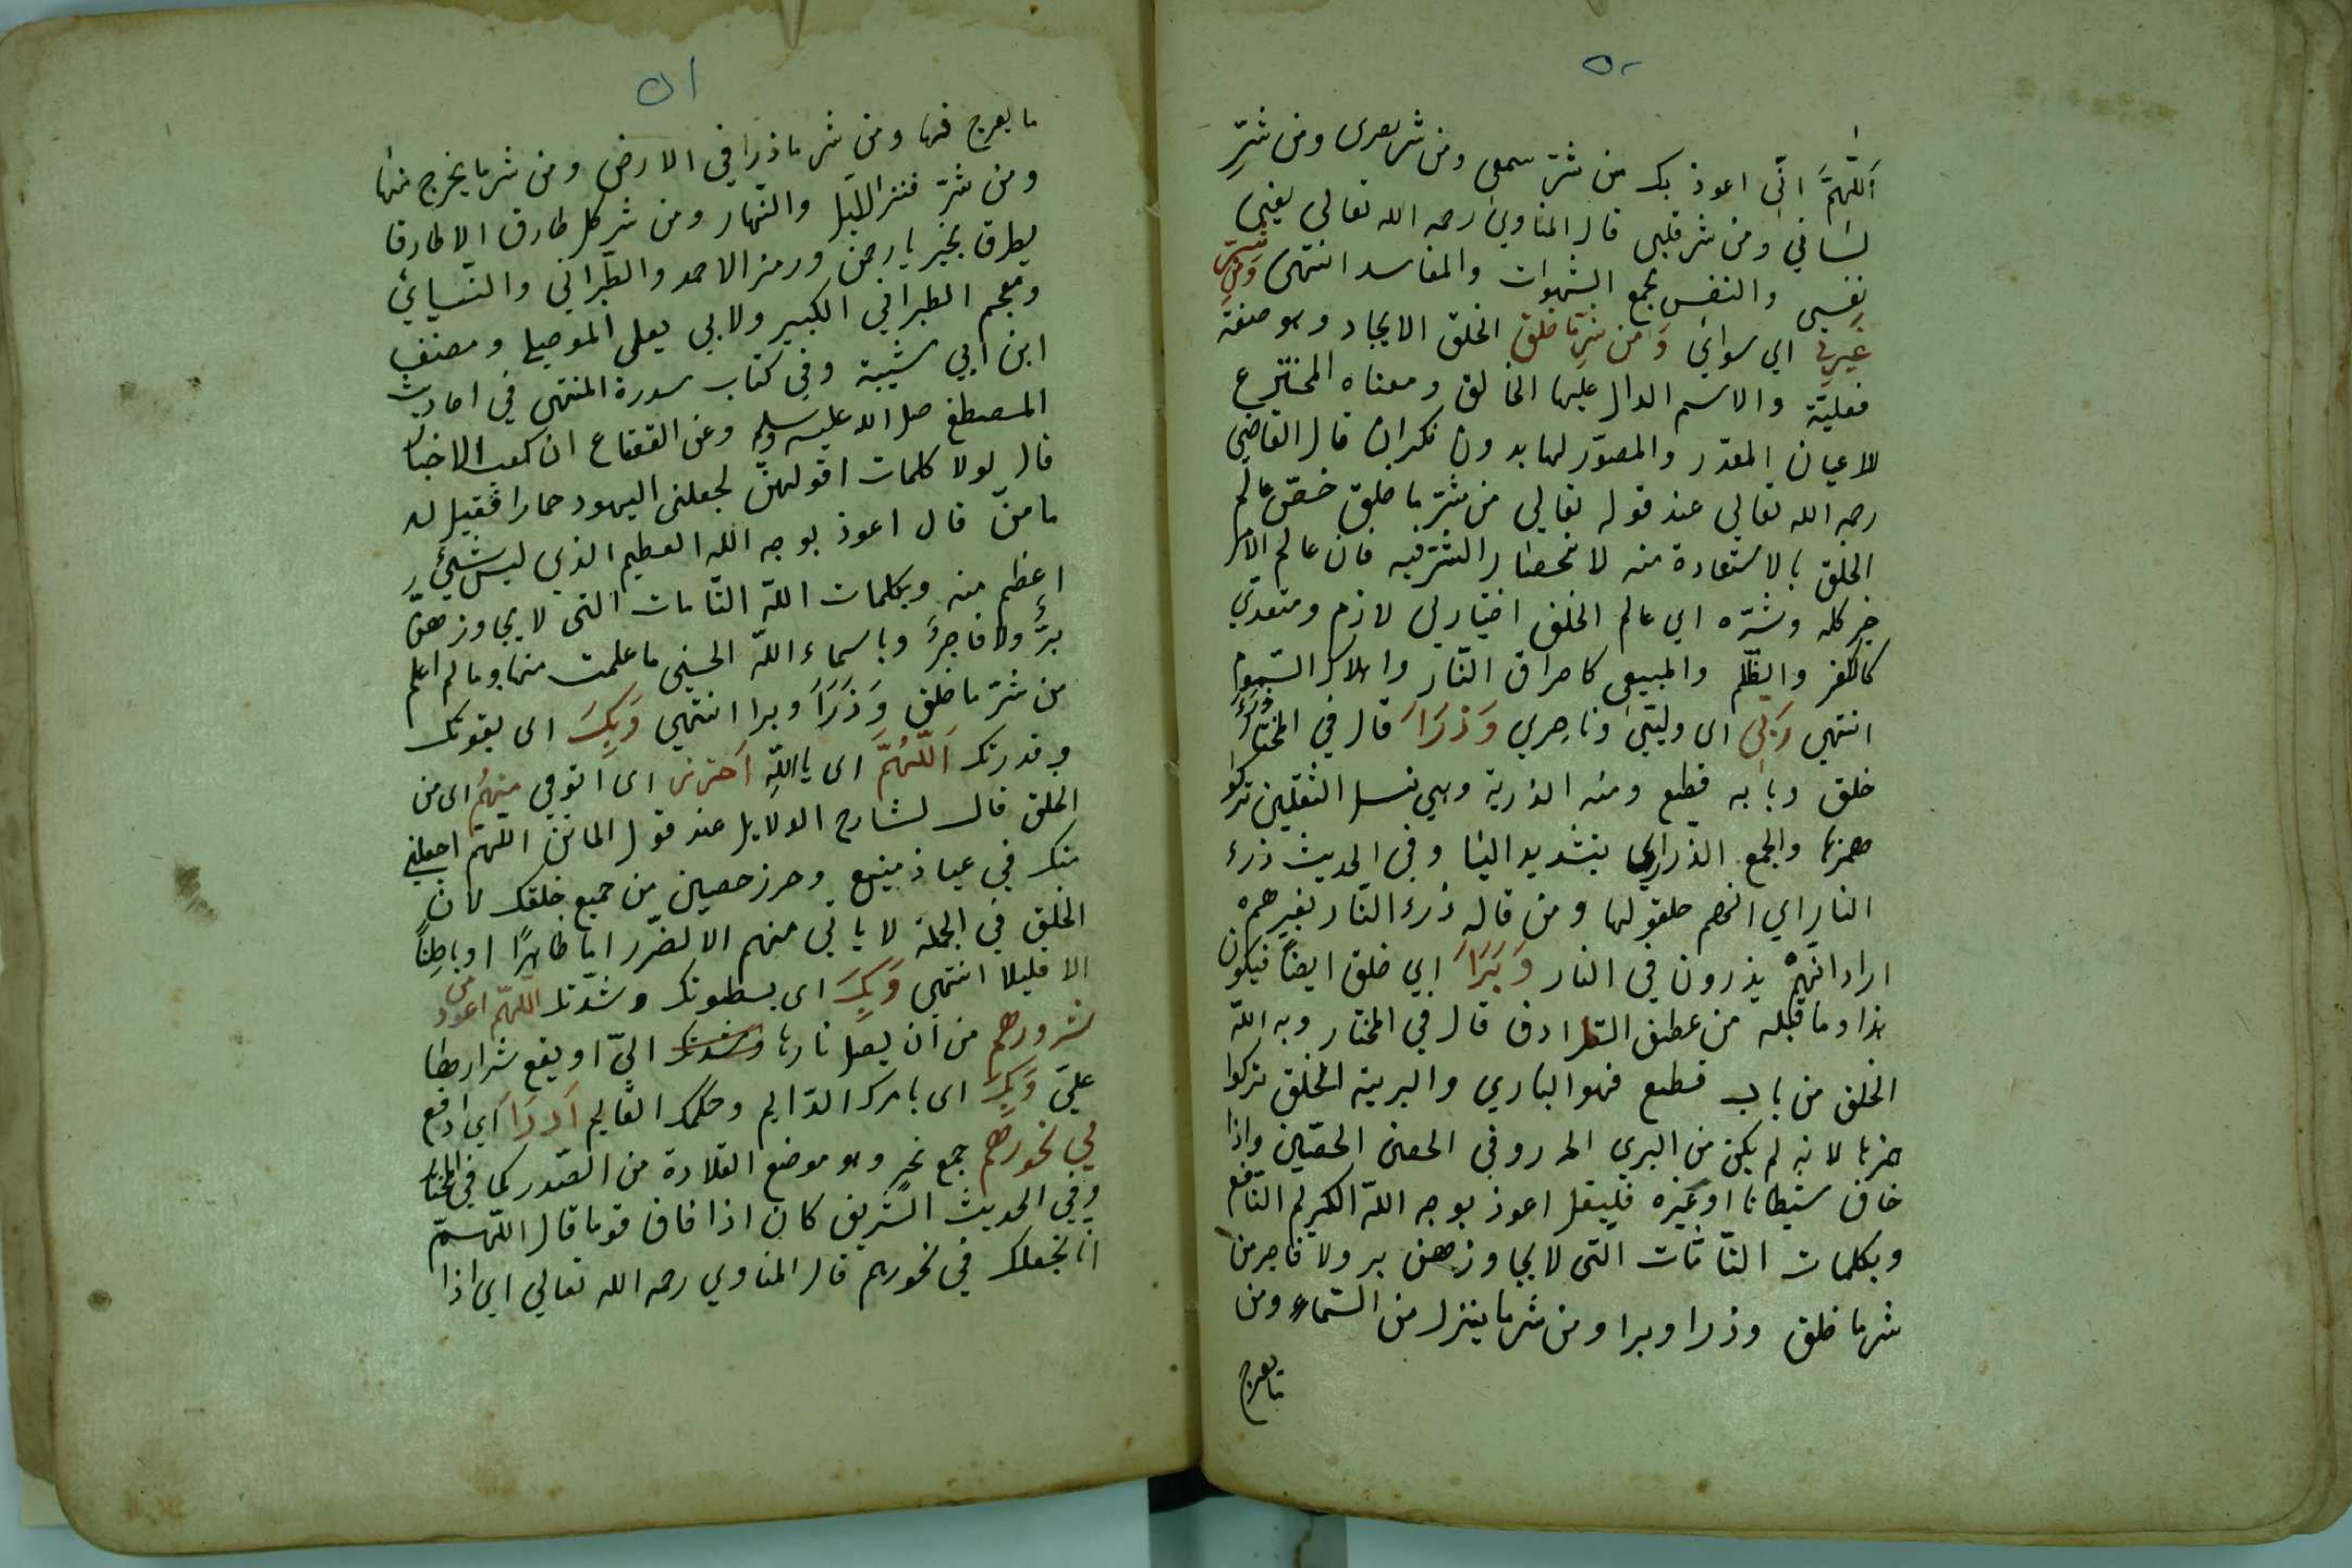 ٥٠
اللّهمّ انّي اعوذ بك من شرّ سمعي ومن شر بصرى ومن شرّ
لساني ومن شر قلبي قال المناوي رحمه الله تعالى يعني
نفسي والنفس مجمع الشهوات والمفاسد انتهى ومن شر
غيري اي سوائي ومن شر ما خلق الخلق الايجاد وهو صفة
فعليّة والاسم الدال عليها الخالق ومعناه المخترع
للاعيان المقدّر والمصوّر لها بدون نكران قال القاضي
رحمه الله تعالى عند قوله تعالى من شرّ ما خلق خصّ عالم
الخلق بالاستعاذة منه لانحصار الشر فيه فان عالم الامر
خير كله وشرّه اي عالم الخلق اختياري لازم ومتعدي
كالكفر والظّلم والطبيعي كاحراق النّار واهلاك السّموم
انتهى ربّي اى وليّي وناصري وَذَرَاَ قال في المختار ذرأ
خلق وبابه قطع ومنه الذرية وهي نسل الثقلين تركوا
همزها والجمع الذراري بتشديد اليا وفي الحديث ذرء
النار اي انهم خلقو لها ومن قال ذرء النار بغير همزة
اراد انّهمْ يذرون في النار وَبَرَاَ اي خلق ايضا فيكون
هذا وما قبله من عطف الترادف قال في المختار وبرا اللّه
الخلق من باب قطع فهو الباري والبرية الخلق تركوا
همزها لانه لم يكن من البري اﻫ وفي الحصن الحصين واذا
خاف شيطانا او غيره فليقل اعوذ بوجه اللّه الكريم النّافع
وبكلمات التّامّات التى لا يجاوزهن بر ولا فاجر من
شر ما خلق وذرا وبرا ومن شر ما ينزل من السّماء ومن
ما يعرج
٥١
ما يعرج فيها ومن شر ما ذرا في الارض ومن شر ما يخرج منها
ومن شرّ فتن الليل والنّهار ومن شر كل طارق الا طارقا
يطرق بخير يا رحمن ورمز لاحمد والطّبراني والنّسائي
ومعجم الطبراني الكبير ولابي يعلى الموصلي ومصنف
ابن ابي شيبة وفي كتاب سدرة المنتهى في احاديث
المصطفى صلى الله عليه وسلم وعن القعقاع ان كعب الاحبار
قال لولا كلمات اقولهنّ لجعلنى اليهود حمارا فقيل له
ما هنّ قال اعوذ بوجه اللّه العظيم الذي ليس شئ
اعظم منه وبكلمات اللّه التّامات التى لا يجاوزهنّ
برّ ولا فاجر وباسماء اللّه الحسنى ما علمت منها وما لم اعلم
من شرّ ما خلق وَذَرَاَ وبرا انتهى وَبِكَ اى بقوتك
وقدرتك اَللّهُمَّ اى يا اللّه احترس اى اتوقي منهُم اى من
الخلق قال لشارح الدلايل عند قول الماتن اللّهمّ اجعلني
منك في عياذ منيع وحرز حصين من جميع خلقك لان
الخلق في الجملة لا ياتي منهم الا لضّرر اما ظاهرًا او باطِنًا
الا قليلا انتهى وَبِكَ اى بسطوتك وشدّتك اللّهمّ اعوذ من
شرورهم من ان يصل نارها وشدتك اليّ او يقع شرارها
عليّ وَبِكَ اى بامرك الدّايم وحكمك القايم اَدرَاَ اي ادفع
في نحورهم جمع نحر وهو موضع القلادة من الصّدر كما في المختار
وفي الحديث الشّريف كان اذا خاف قوما قال اللّهمّ
انا نجعلك في نحورهم قال المناوي رحمه الله تعالى اي اذا